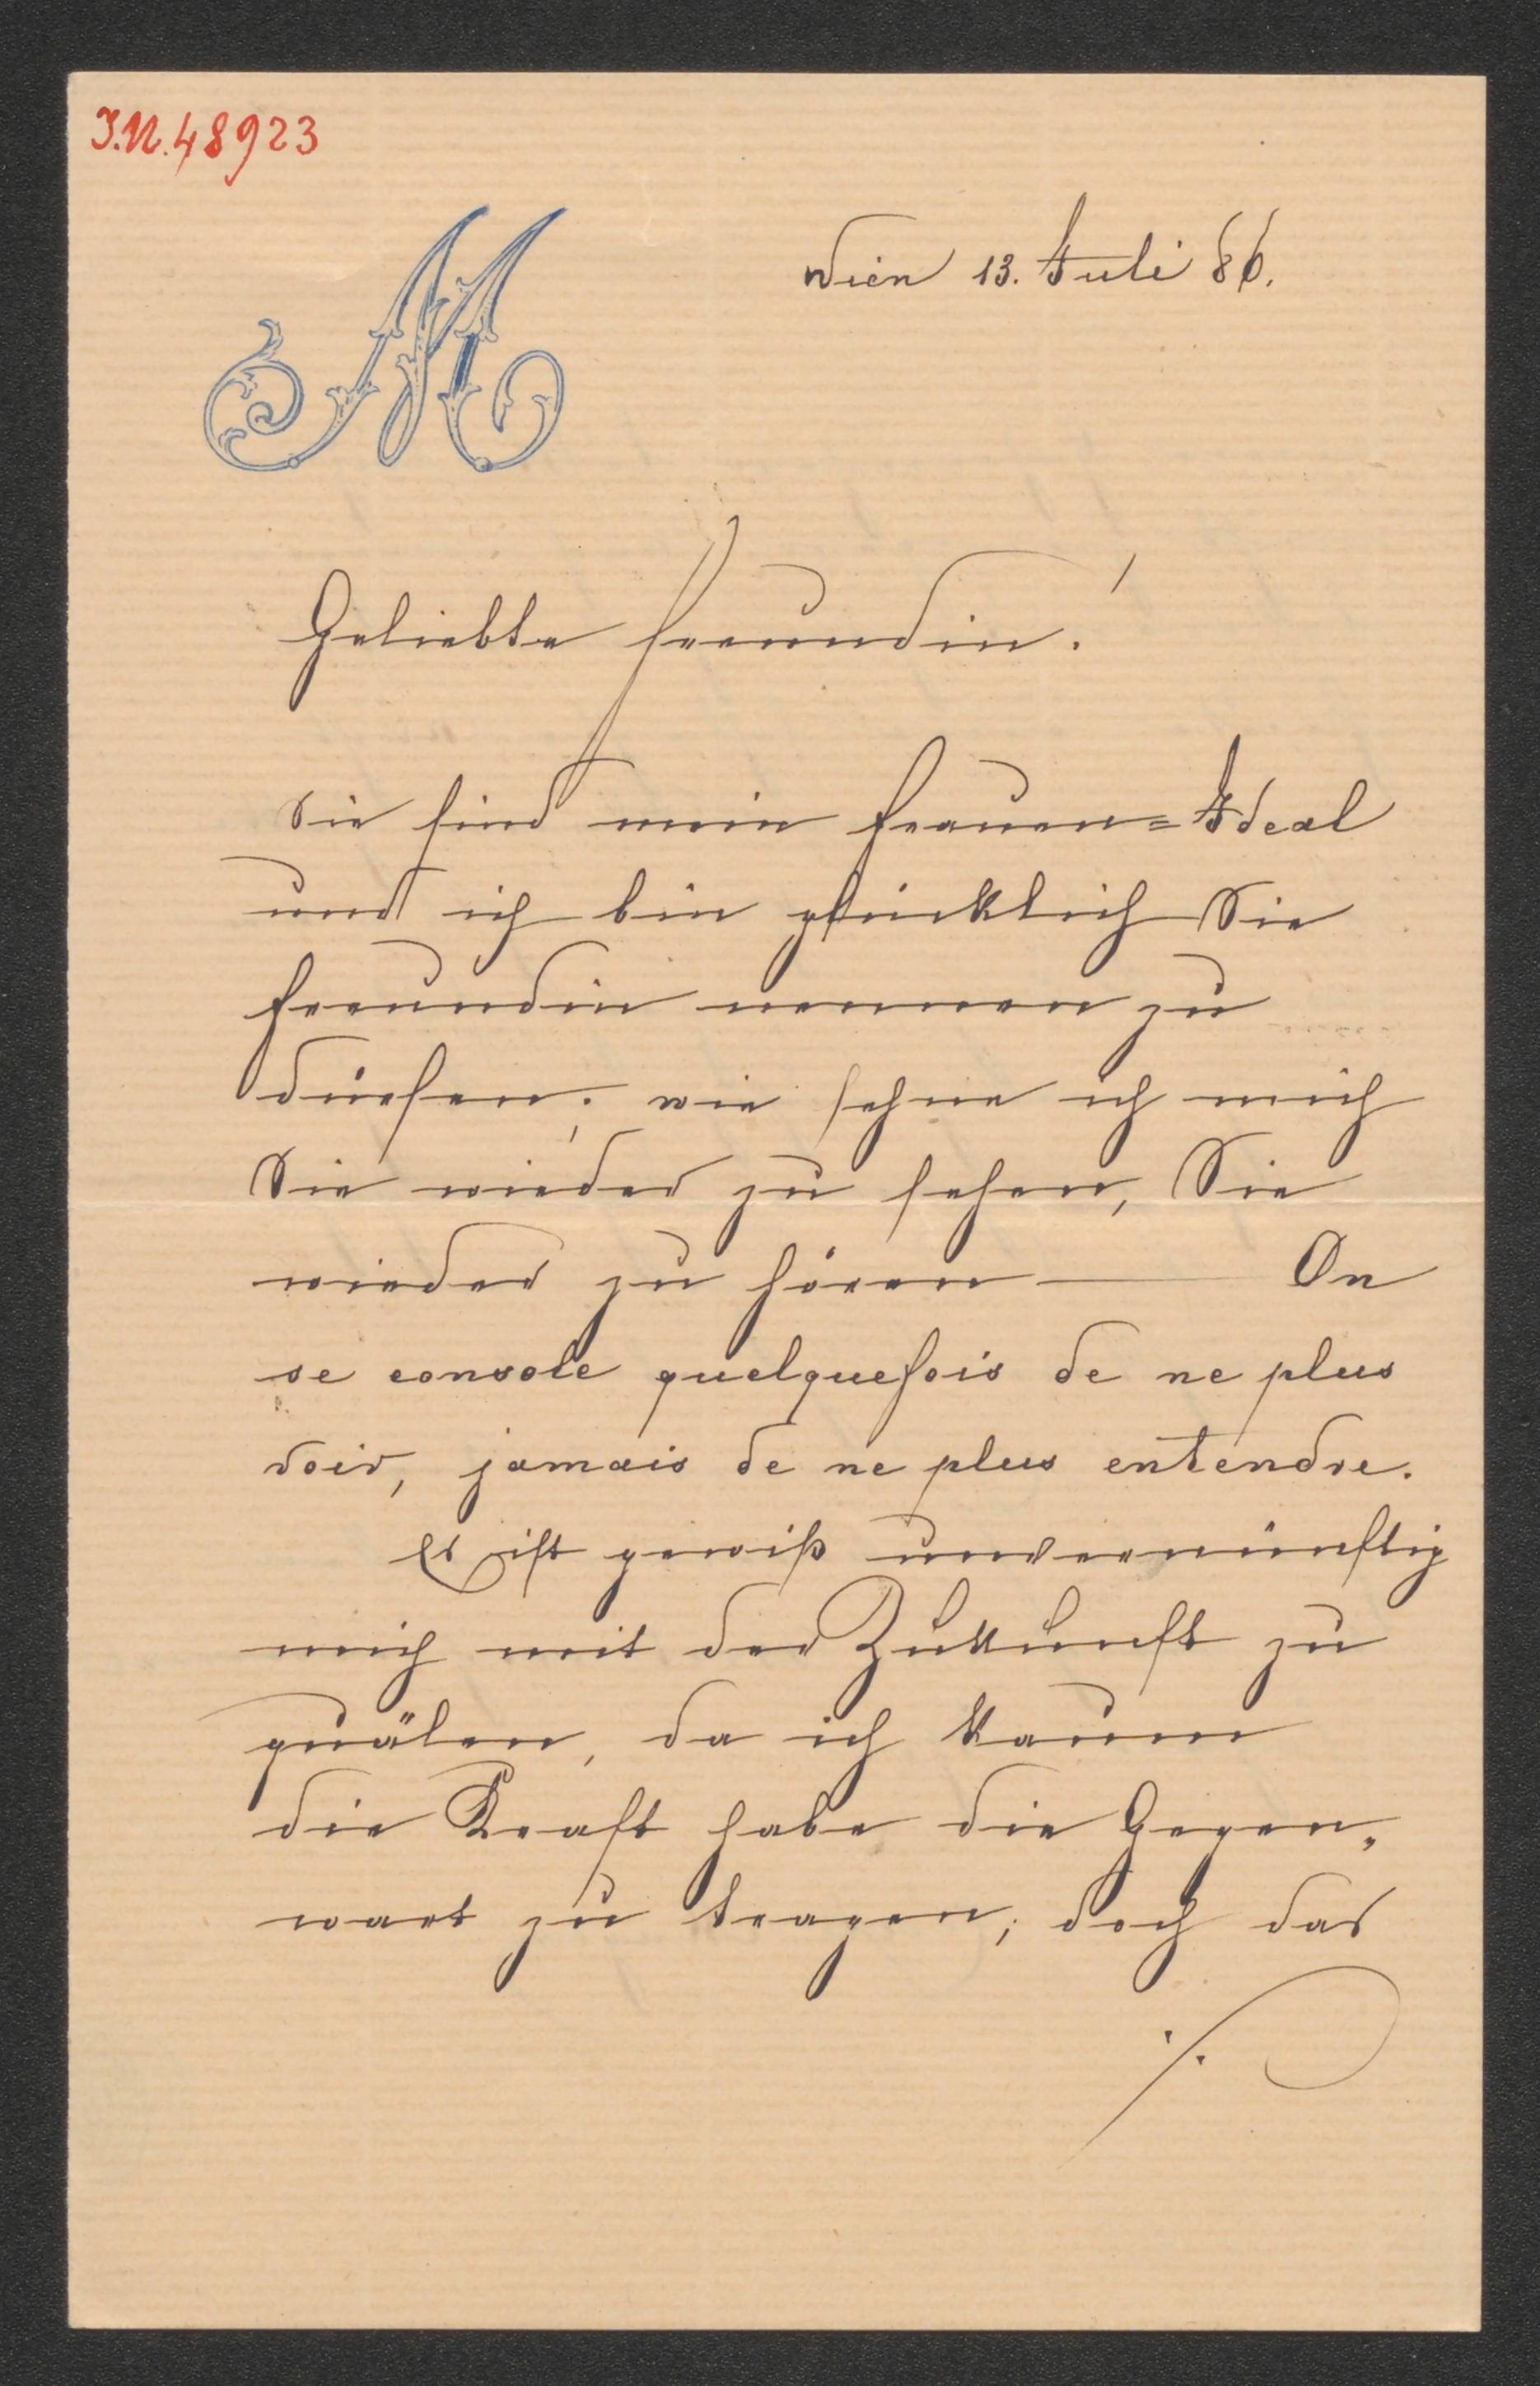 I.N. 48923
M
Wien 13. Juli 86.
Geliebte Freundin!
Sie sind mein Frauen=Ideal
und ich bin glücklich Sie
Freundin nennen zu
dürfen; wie sehne ich mich
Sie wieder zu sehen, Sie
wieder zu hören — On
se console quelquefois de ne plus
voir, jamais de ne plus entendre.
Es ist gewiß unvernünftig
mich mit der Zukunft zu
quälen, da ich kaum
die Kraft habe die Gegen„
wart zu tragen; doch das
./.